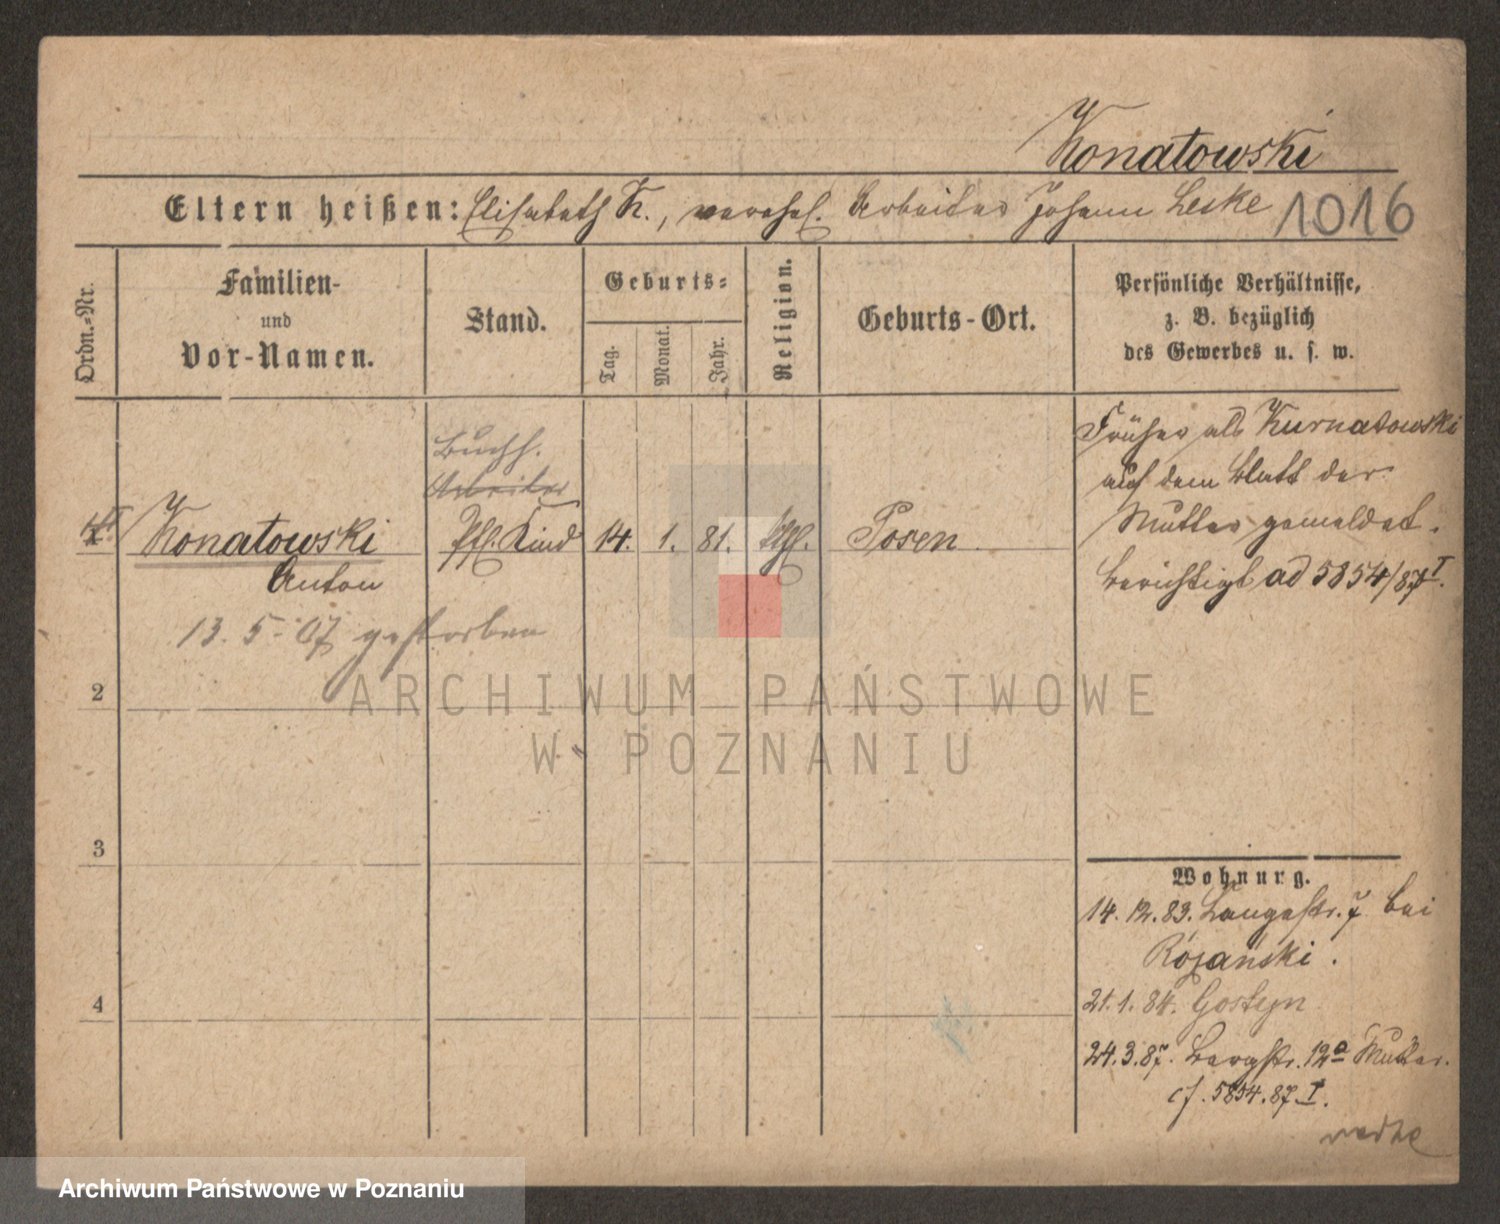 Konatowski
Eltern heißen: Elisabeth K., verehel. Arbeiter Johann Leske 1016
Ordn.-Nr.
Familien-
und
Vor-Namen.
Stand.
Geburts-
Tag.
Monat.
Jahr.
Religion.
Geburts-Ort.
Persönliche Verhältnisse,
z. B. bezüglich
des Gewerbes u. s. w.
Buchh.
Arbeiter
Konatowski Pfl. Kind 14. 1. 81. kthl. Posen
Anton
13. 5. 07 gestorben
Früher als Kurnatowski
auf dem Blatt der
Mutter gemeldet.
berichtigt ad 5854/87 I.
2
3
4
Wohnung.
14. 12. 83. Langestr. 7 bei
Rójański.
21. 1. 84. Gostyn
24. 3. 87. Bergstr. 12a Mutter.
cf. 5854. 87. I.
ARCHIWUM PAŃSTWOWE
W POZNANIU
Archiwum Państwowe w Poznaniu